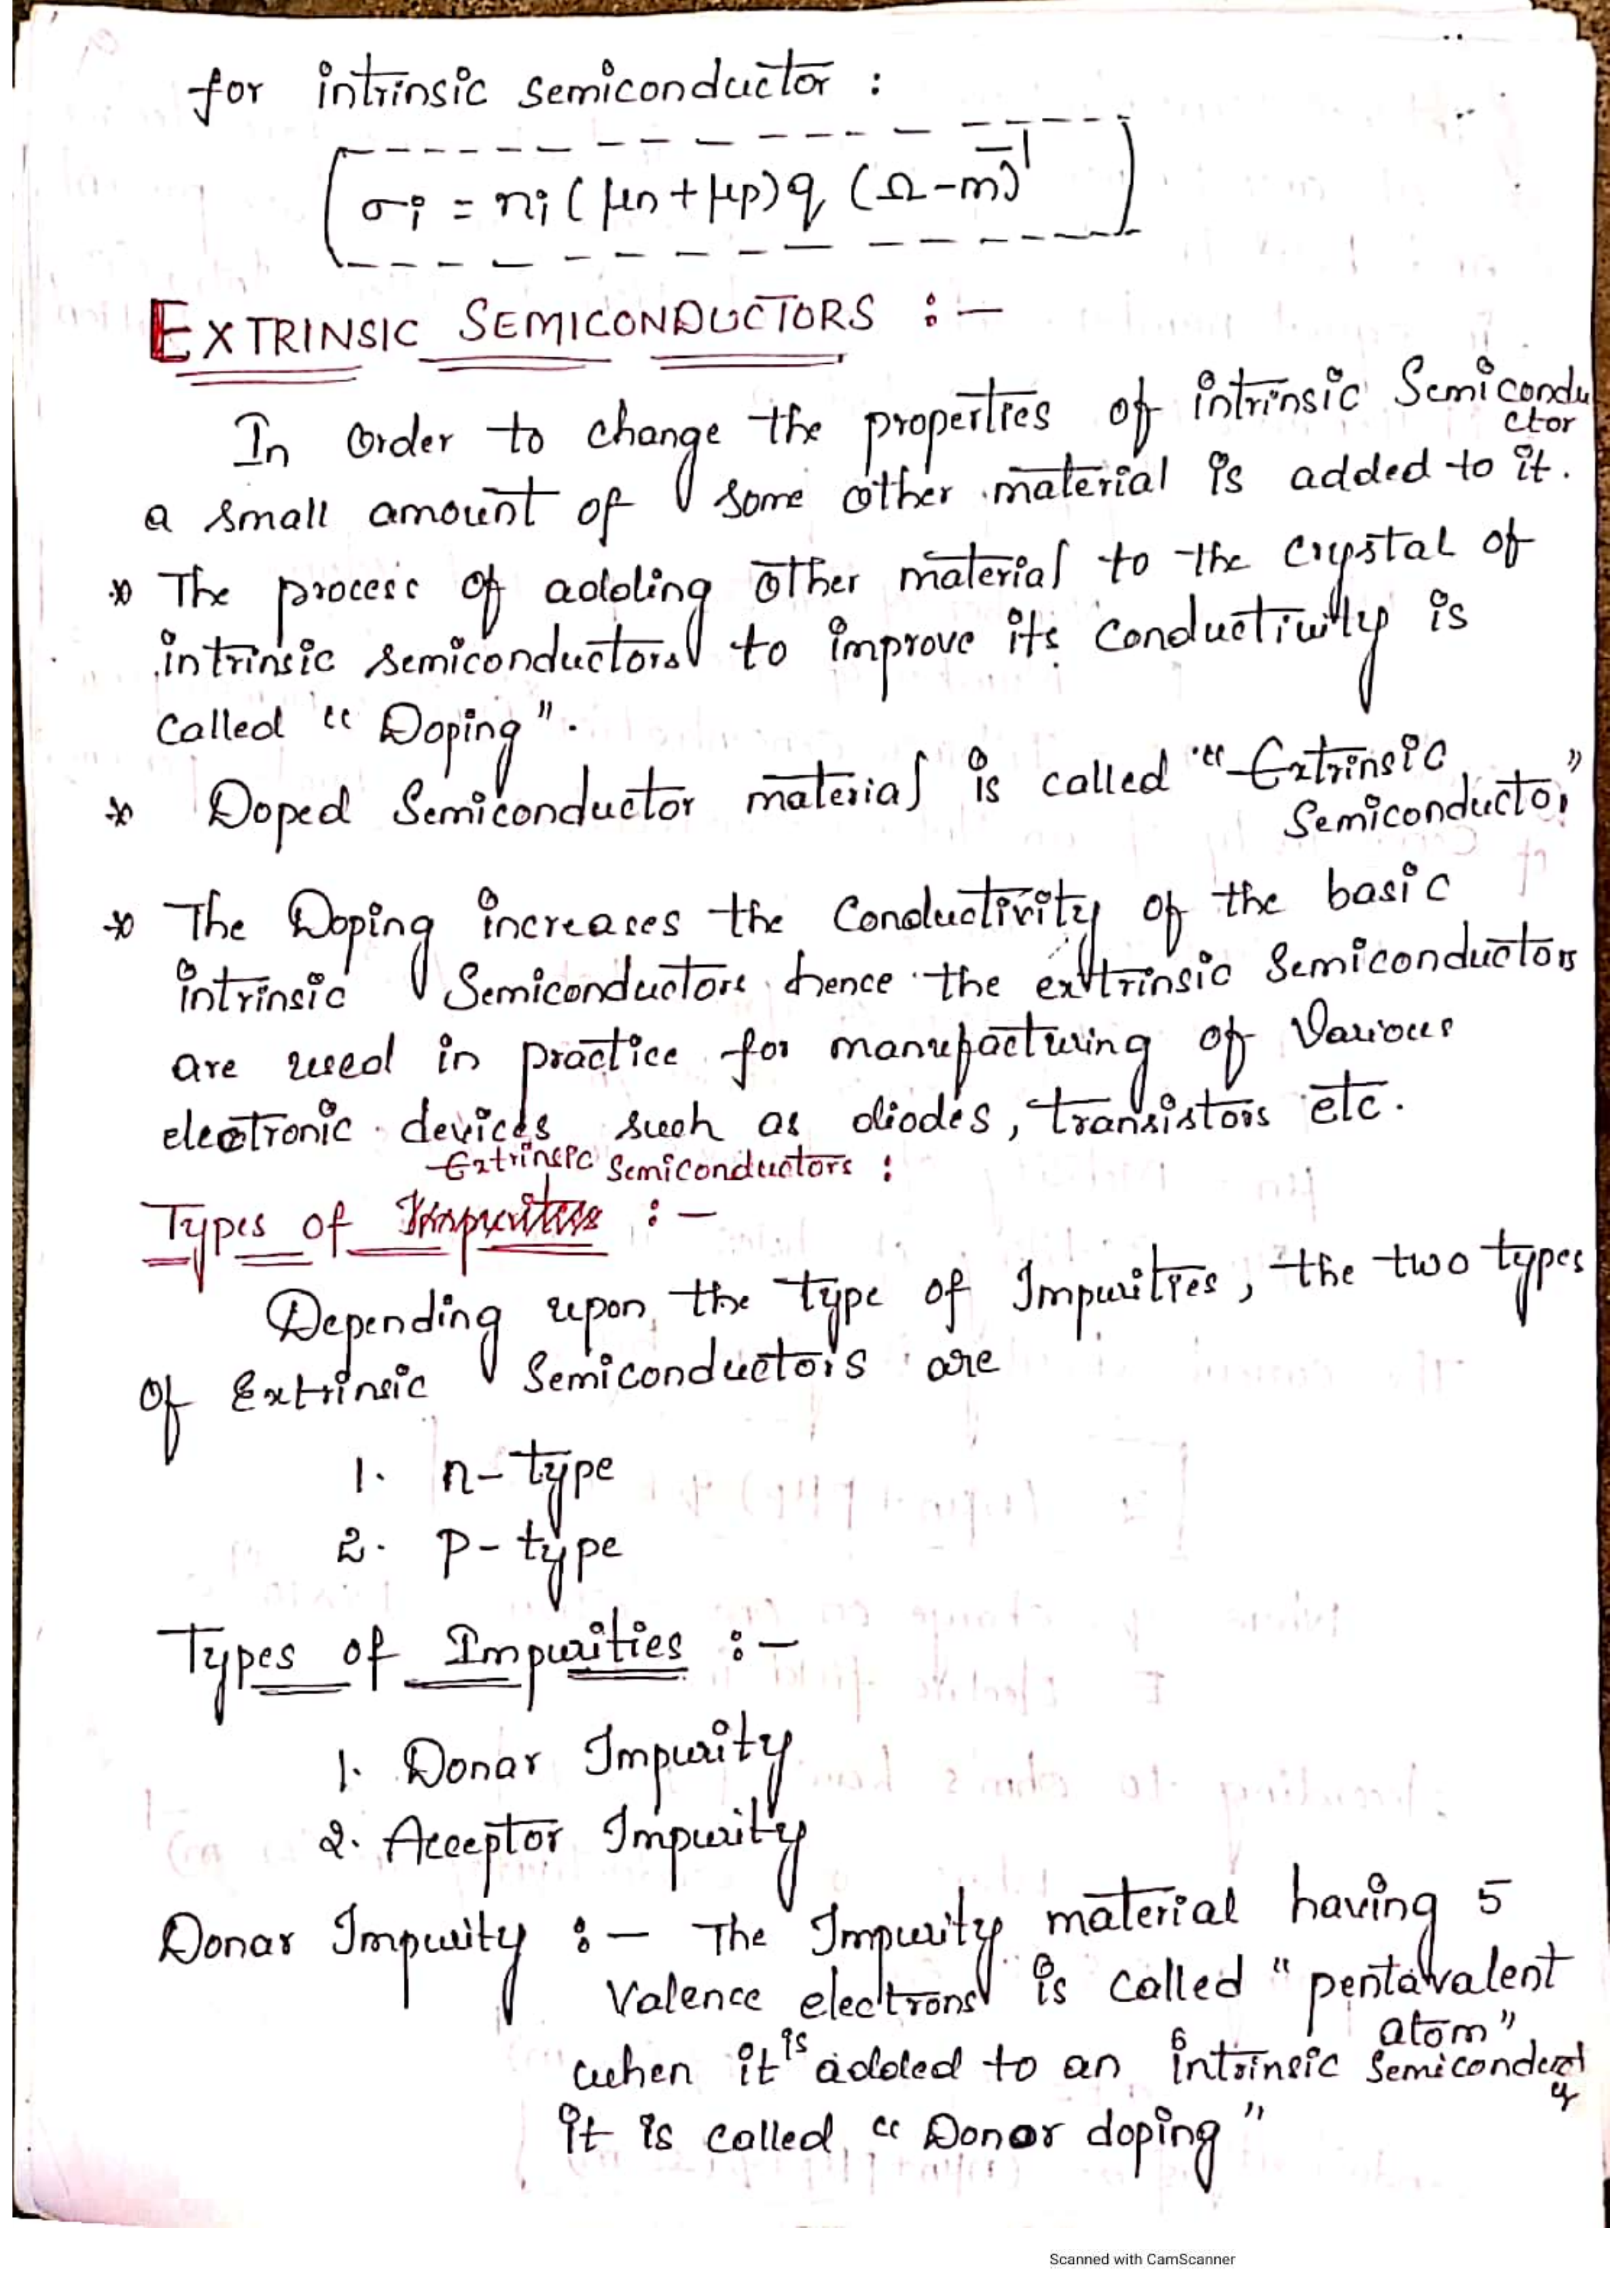 for intrinsic semiconductor :
σi = ni ( μn + μp) q (Ω-m)⁻¹
EXTRINSIC SEMICONDUCTORS :-
In Order to change the properties of intrinsic Semicondu
ctor
a small amount of some other material is added to it.
* The process of adding other material to the crystal of
intrinsic semiconductors to improve its conductivity is
called "Doping".
* Doped Semiconductor material is called "Extrinsic
Semiconductor"
* The Doping increases the Conductivity of the basic
intrinsic Semiconductors hence the extrinsic Semiconductors
are used in practice for manufacturing of Various
electronic devices such as diodes, transistors etc.
Extrinsic Semiconductors :
Types of Impurities :-
Depending upon the type of Impurities, the two types
Of Extrinsic Semiconductors are
1. n-type
2. P-type
Types of Impurities :-
1. Donar Impurity
2. Acceptor Impurity
Donar Impurity :- The Impurity material having 5
Valence electrons is called "pentavalent
atom"
when it is added to an intrinsic Semiconduct
or
it is called "Donor doping"
Scanned with CamScanner